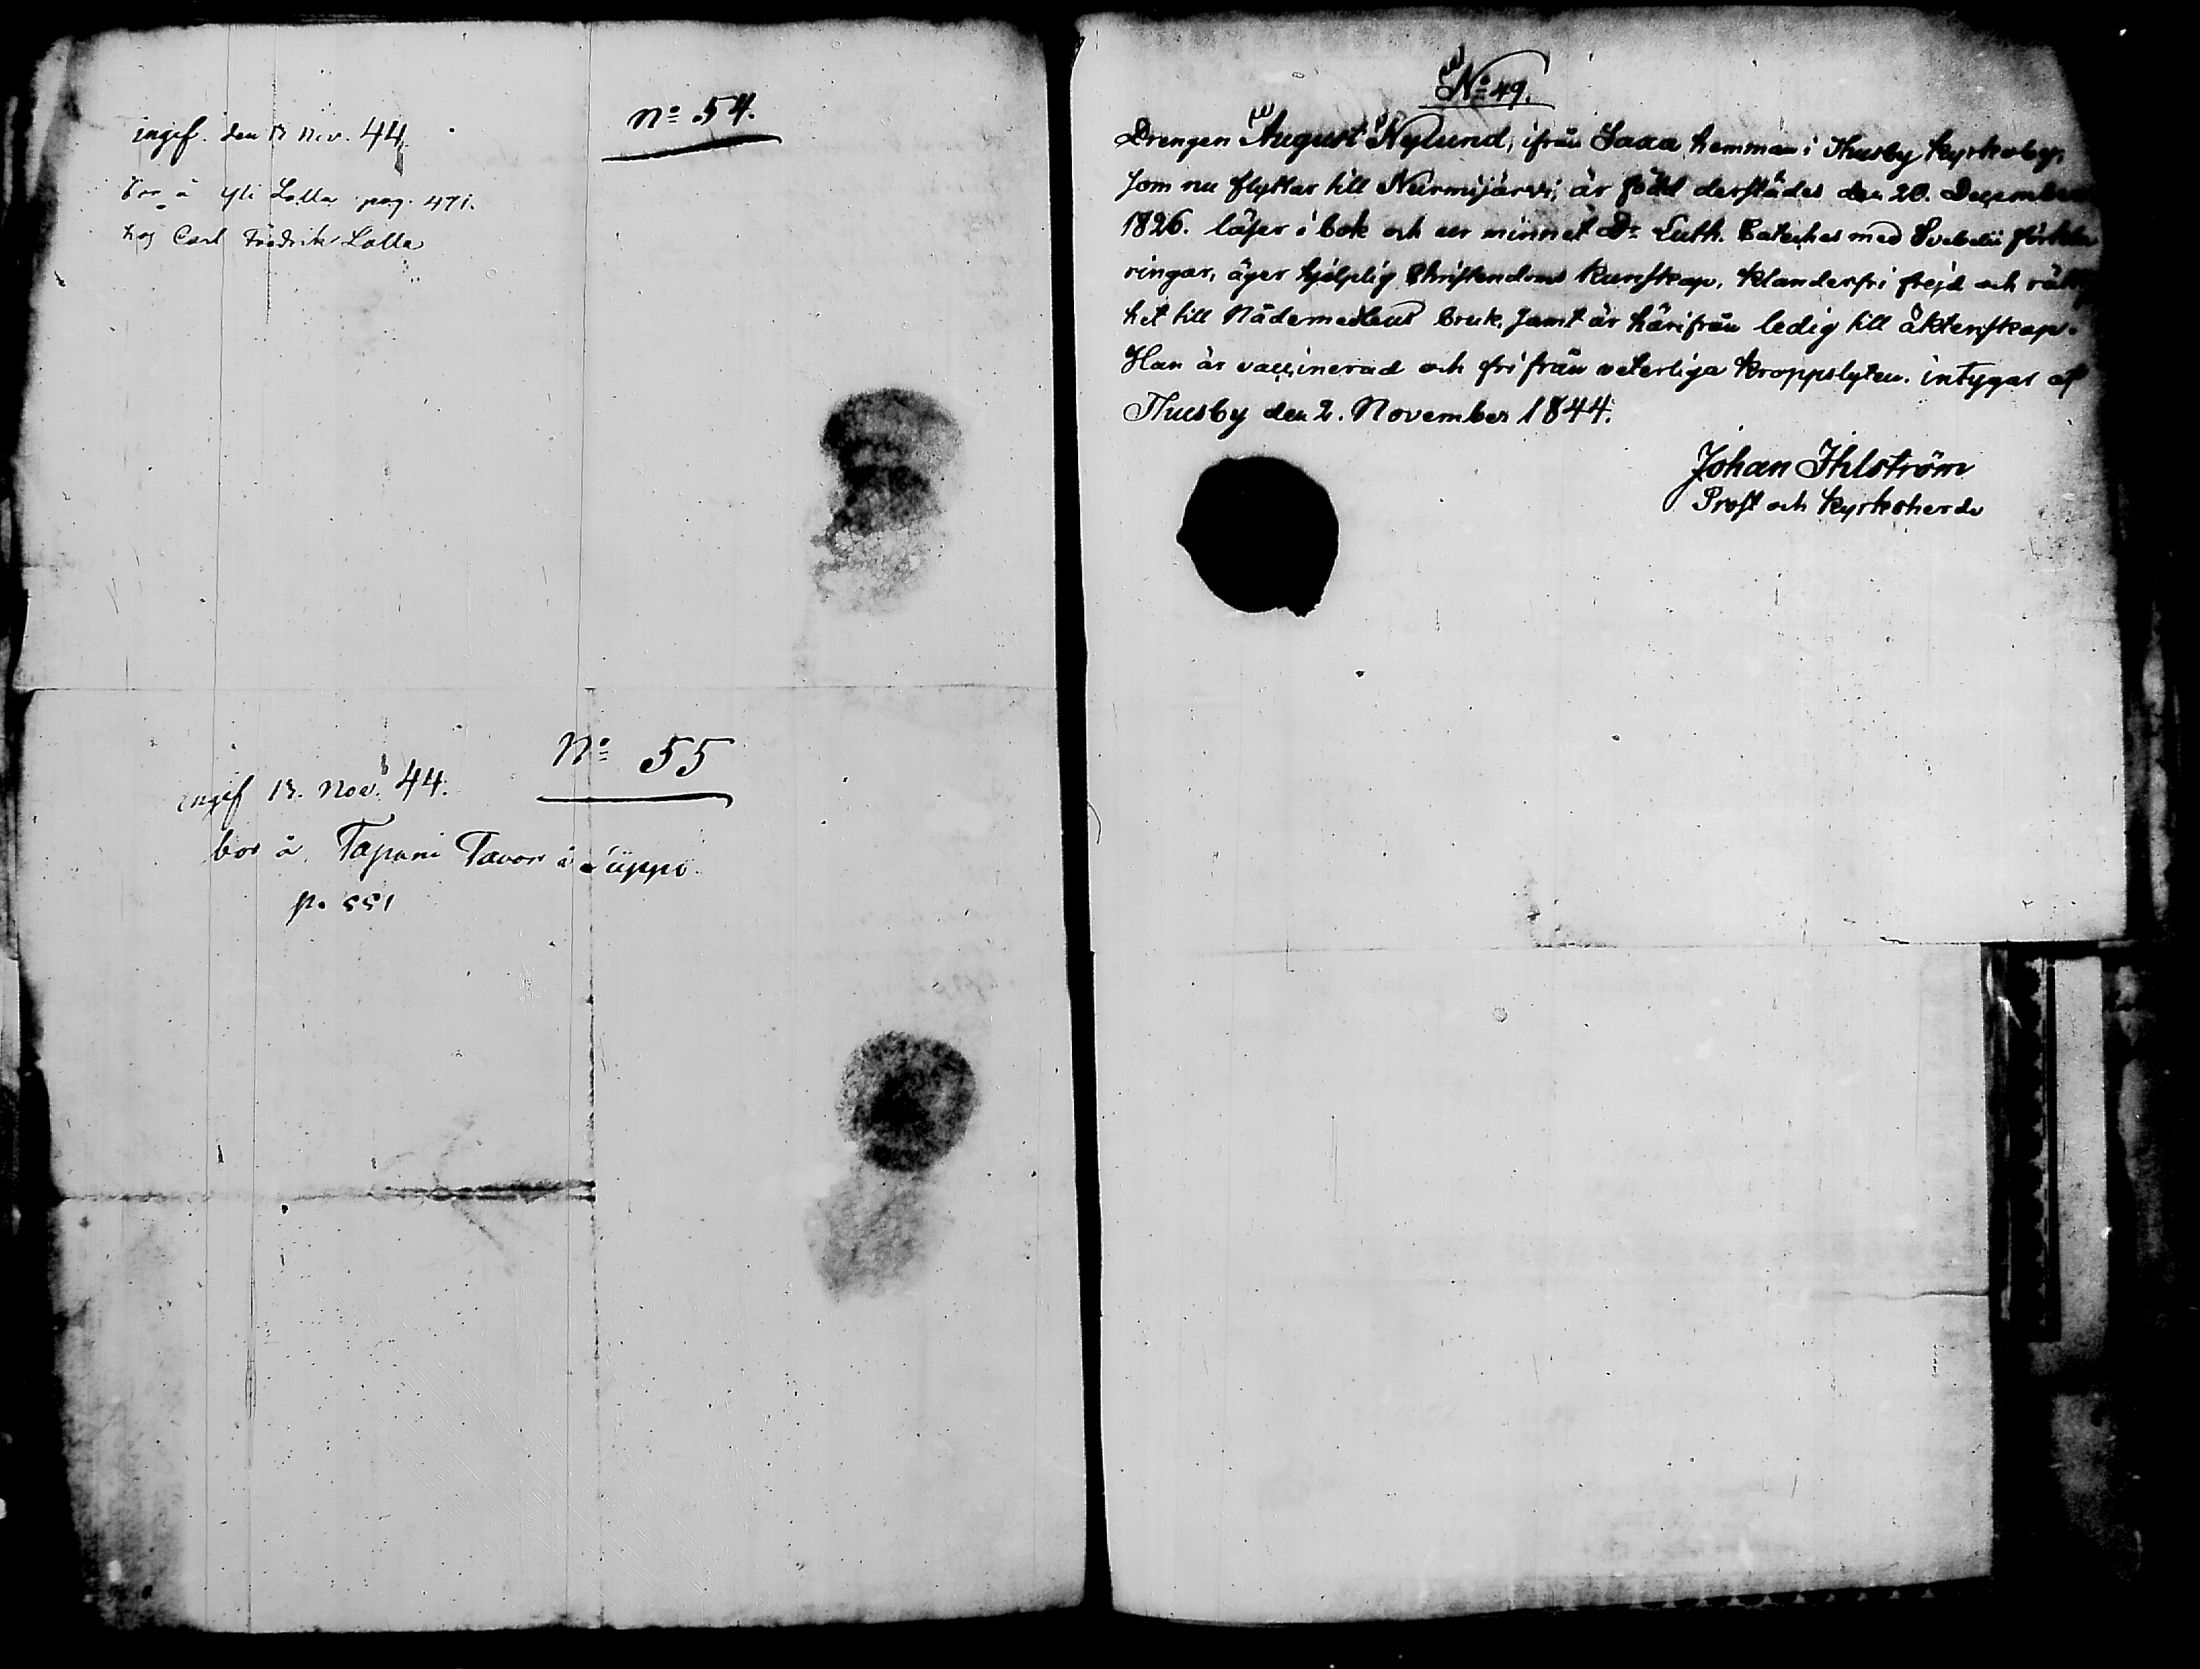 ingif. den 13 Nov. 44.
No 54.
bor å Yli Lolla pag. 471.
hos Carl Fredrik Lolla
No 55
ingif 13. Nov. 44.
bor å Tapani Tavon i
p. 551
No 49.
Drengen August Nylund, ifrån Saxa hemman i Thusby kyrkoby,
som nu flyttar till Nurmijärvi, är född derstädes den 20. December
1826. läser i bok och ur minnet Dr Luth. Cateches med Svebelii förkla
ringar, äger hjelplig Christendoms kunskap, klanderfri frejd och rättig
het till Nådemedlens bruk, samt är härifrån ledig till äktenskap.
Han är vaccinerad och fri från veterliga kroppslyten. intygar af
Thusby den 2. November 1844.
Johan Ihlström
Prost och Kyrkoherde